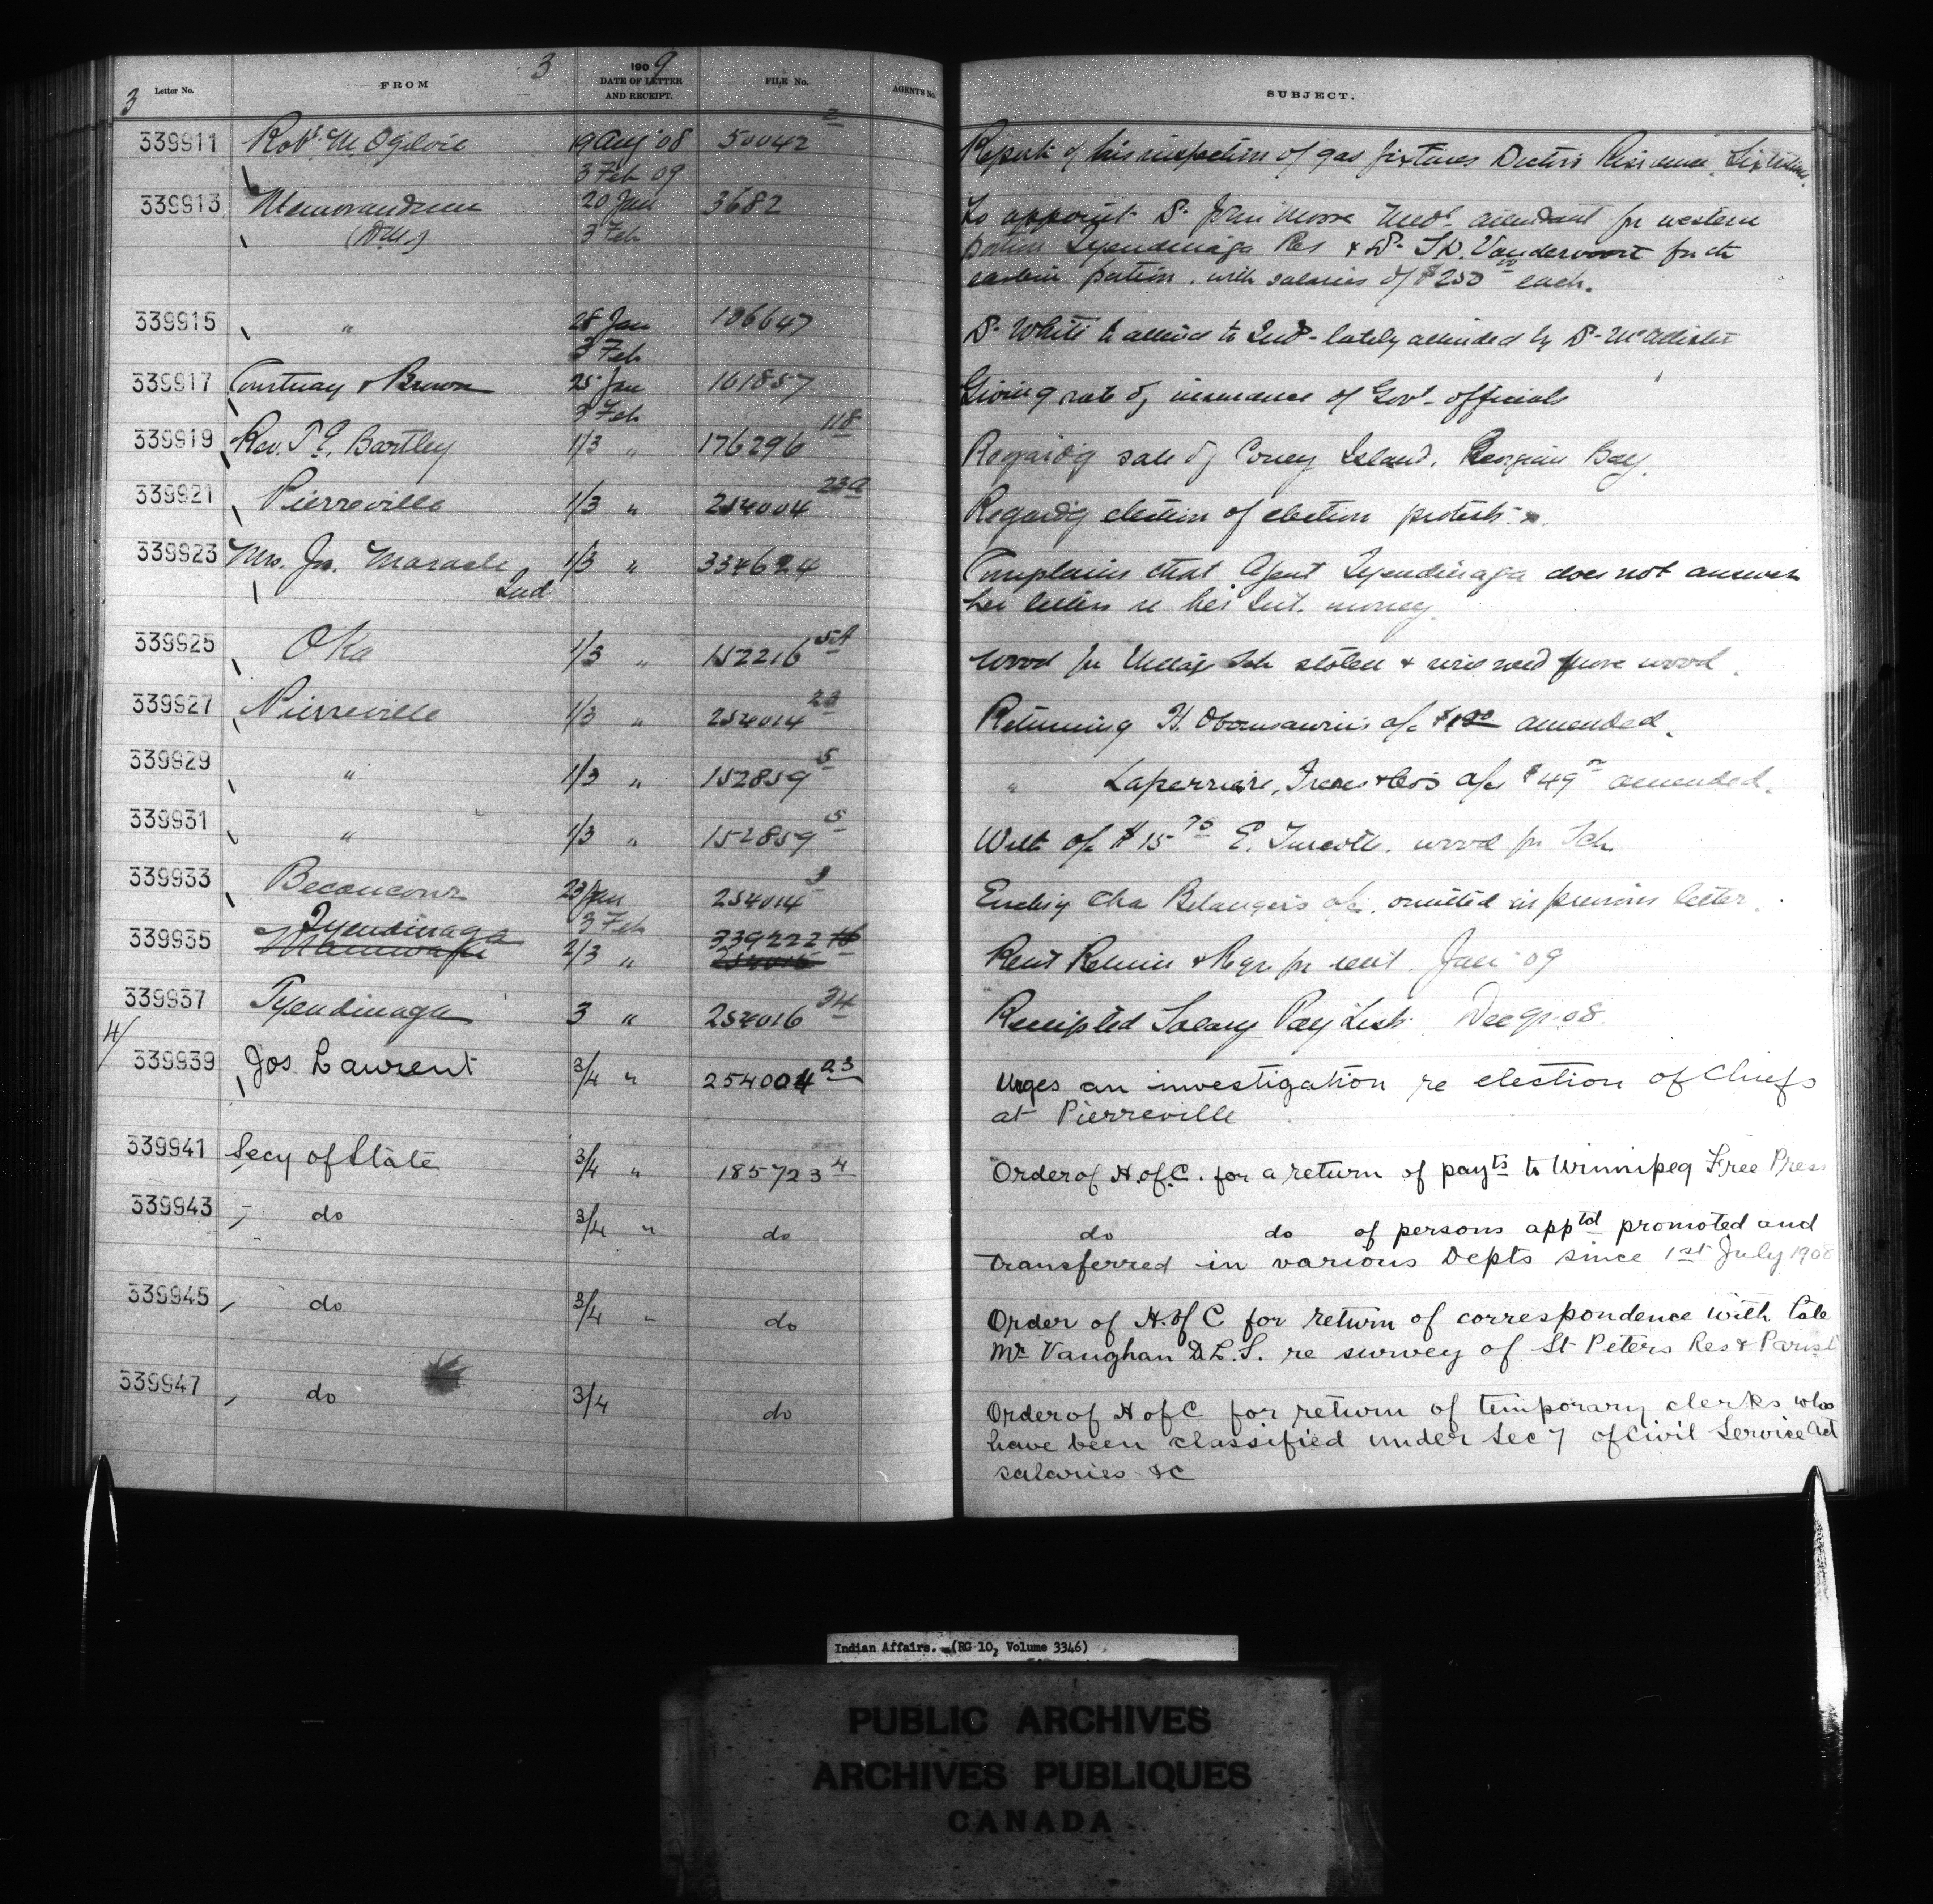 3
Letter No. FROM 3 1909 DATE OF LETTER AND RECEIPT. FILE No. AGENT'S No. SUBJECT.
339911 Robt. M. Ogilvie 19 Aug '08 50042 2 Report of his inspection of gas fixtures Doctor's Residence,
3 Feb 09
339913 Memorandum 20 Jan 3682 To appoint Dr. John Moore Medl. attendant for western
3 Feb portion Tyendinaga Res & Dr. Vandervoort for the
eastern portion, with salaries of $250 00 each.
339915 " 28 Jan 106647 Dr. White to attend to Inds. lately attended by Dr. McAllister
3 Feb
339917 Courtnay & Brown 25 Jan 161857 Giving rate of insurance of Govt. officials
3 Feb
339919 Rev. Bartley 1/3 " 176296 118 Regard'g sale of Coney Island, Georgian Bay.
339921 Pierreville 1/3 " 254004 23a Regard'g election of election protests.
339923 Mrs. Jn. Maracle 1/3 " 334624 Complains that Agent Tyendinaga does not answer
Ind her letters re her Int. money.
339925 Oka 1/3 " 152216 5A Wood for Village Sch stolen & will need more wood.
339927 Pierreville 1/3 " 254014 23 Returning H. Obomsawin's a/c amended.
339929 " 1/3 " 152859 5 " Laperriere, a/c $49 amended.
339931 " 1/3 " 152859 5 With a/c $15 75 E. Turcotte. wood for Sch
339933 Becancour 23 Jan 254014 9 Enclos'g Cha Belanger's a/c. omitted in previous letter.
3 Feb
339935 Tyendinaga 2/3 " 339222 Rent Return & Reqn for rent Jan '09
Maniwaki
339937 Tyendinaga 3 " 254016 34 Receipted Salary Pay List Dec qr. 08.
4/
339939 Jos Laurent 3/4 " 254004 23 Urges an investigation re election of Chiefs
at Pierreville
339941 Secy of State 3/4 " 185723 4 Order of H. of C. for a return of payts to Winnipeg Free Press
339943 " do 3/4 " do do do of persons apptd promoted and
transferred in various Depts since 1st July 1908
339945 " do 3/4 " do Order of H. of C for return of correspondence with late
Mr Vaughan D.L.S. re survey of St Peters Res & Parish
339947 " do 3/4 do Order of H of C for return of temporary clerks who
have been classified under Sec 7 of Civil Service Act
salaries &c
Indian Affairs. (RG 10, Volume 3346)
PUBLIC ARCHIVES
ARCHIVES PUBLIQUES
CANADA